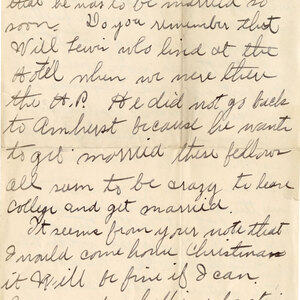 that he was to be married so
soon. Do you remember that
Will Lewis who lived at the
Hotel when we were there
the H.P. He did not go back
to Amherst because he wants
to get married these fellows
all seem to be crazy to leave
College and get married.
It seems from your note that
I would come home Christmas
it will be fine if I can.